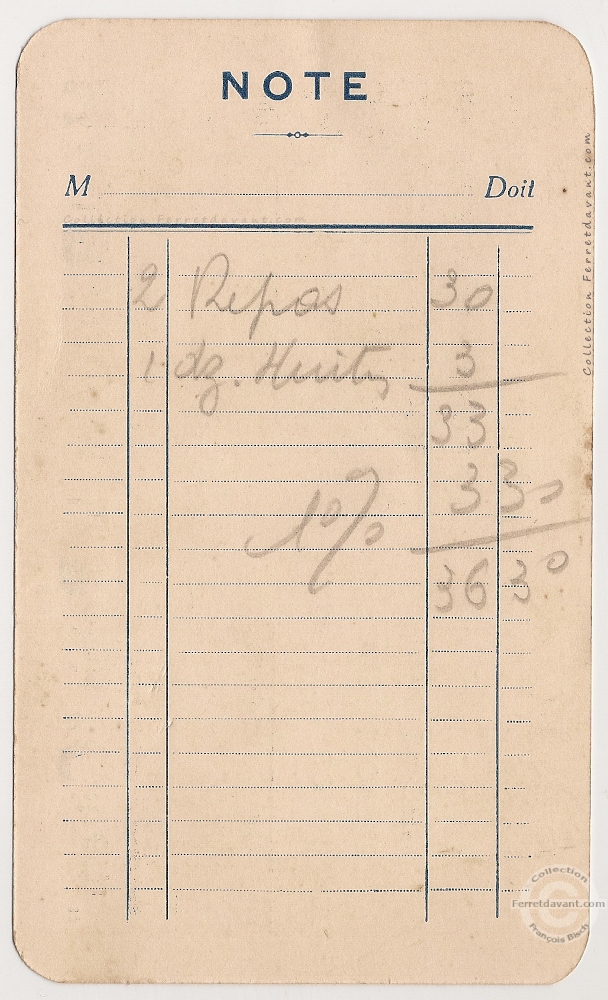 NOTE
M Doit
Collection Ferretdavant.com
2 Repas 30
1 dz. Huitres 3
33
10% 3 30
36 30
Collection Ferretdavant.com
Collection
Ferretdavant.com
François Bisch